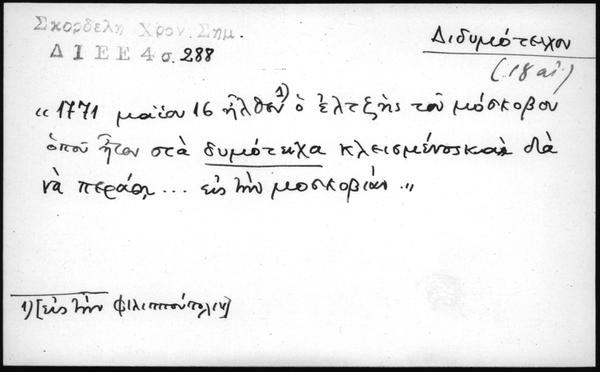 Σκορδελη Χρον. Σημ.
ΔΙΕΕ 4 σ. 288
Διδυμότειχον
(18 αἰ.)
« 1771 μαϊου 16 ἦλθεν 1) ὁ ἐλτξῆς τοῦ μόσκοβου
ὁποῦ ἦτον στὰ δυμότειχα κλεισμένος καὶ διὰ
νὰ περάσῃ ... εἰς τὴν μοσκοβίαν »
1) [εἰς τὴν Φιλιππούπολιν]